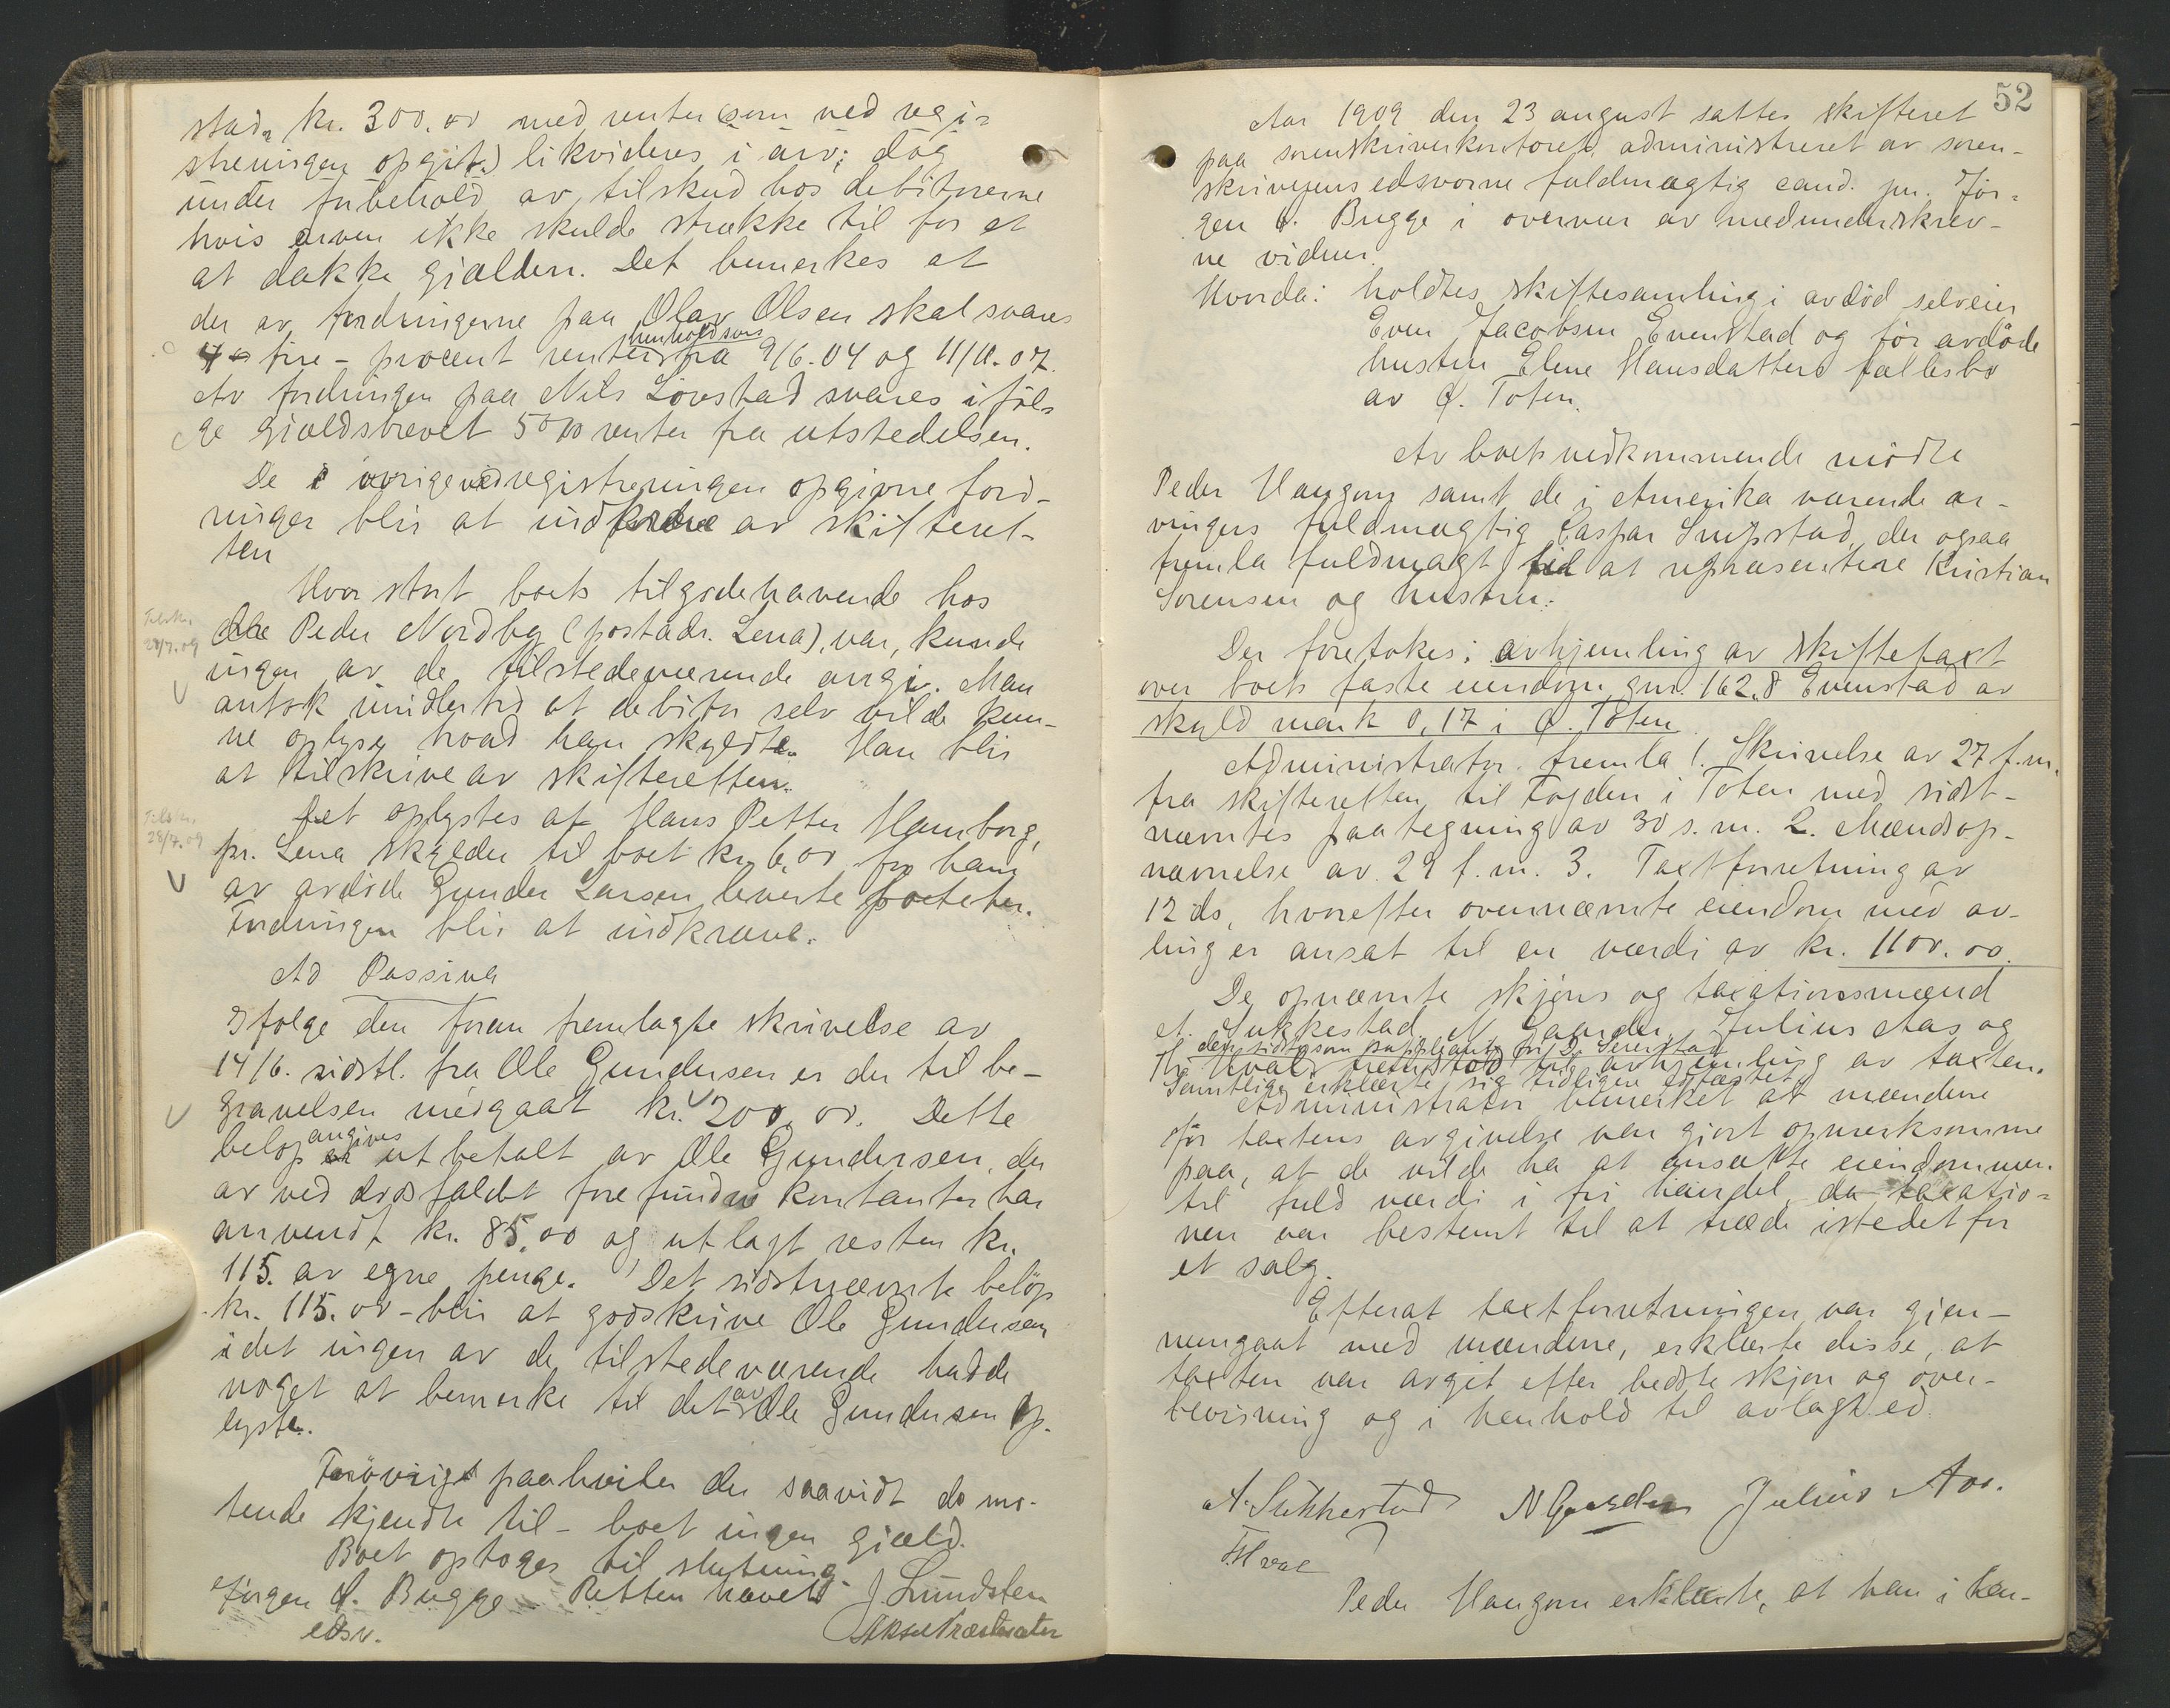 stad, kr. 300.00 med renter (som ved regi-
streringen opgit.) likvideres i arv; dog
under forbehold av tilskud hos debitorerne
hvis arven ikke skulde strække til for at
at dække gjælden. Det bemerkes at
der av fordringerne paa Olav Olsen skal svares
4 - fire - procent renter henholdsvis fra 9/6.04 og 11/11.07.
Av fordringen paa Nils Lönstad svares iföl-
ge gjældsbrevet 5 % renter fra utstedelsen.
De i övrige ved registreringen opgivne ford-
ringer blir at indfordre av skifteret-
ten
Hvor stort boets tilgodehavende hos
Peder Nordby (postadr. Lena), var, kunde
ingen av de tilstedeværende angi. Man
antok imidlertid at debitor selv vilde kun-
ne oplyse hvad han skyldte. Han blir
at tilskrive av skifteretten.
Tilskr.
28/7.09
Det oplystes at Hans Petter Hamborg,
pr. Lena skylder til boet kr. 6,00 for ham
av avdöde Gunder Larsen leverte poteter.
Fordringen blir at indkræve.
Tilskr.
28/7.09
Ad Passiva
Ifölge den foran fremlagte skrivelse av
14/6. sidstl. fra Ole Gundersen er der til be-
gravelsen medgaat kr. 200,00. Dette
belöp angives utbetalt av Ole Gundersen, der
av ved dödsfaldet forefundne kontanter har
anvendt kr. 85,00 og utlagt resten kr.
115. av egne penge. Det sidstnævnte belöp
kr. 115.00 - blir at godskrive Ole Gundersen
idet ingen av de tilstedeværende hadde
noget at bemerke til det av Ole Gundersen op-
lyste.
Forövrigt paahviler der saavidt de mö-
tende kjendte til - boet ingen gjæld.
Boet optoges til slutning.
Retten hævet
Jörgen H. Bugge J. Lundsten
edsv.
52
Aar 1909 den 23 august sattes skifteret
paa sorenskriverkontoret, administreret av soren-
skriverens edsvorne fuldmægtig cand. jur. Jör-
gen H. Bugge i overvær av medunderskrev-
ne vidner.
Hvorda: holdtes skiftesamling i avdöd selveier
Even Jacobsen Evenstad og för avdöde
hustru Elene Hansdatters fællesbo
av Ö. Toten.
Av boets vedkommende mödte
Peder Haugom samt de i Amerika værende ar-
vingers fuldmægtig Caspar Snipstad, der ogsaa
fremla fuldmagt til at repræsentere Kristian
Sörensen og hustru.
Der foretokes: avhjemling av skiftetaxt
over boets faste eiendom gnr. 162,8 Evenstad av
skyld mark 0,17 i Ö. Toten.
Administrator fremla 1. Skrivelse av 27 f.m.
fra skifteretten til Fogden i Toten med sidst-
nævntes paategning av 30 s.m. 2. Mændsop-
nævnelse av 29 f.m. 3. Taxtforretning av
12 ds, hvorefter ovennævnte eiendom med av-
ling er ansat til en værdi av kr. 1100.00.
De opnævnte skjöns og taxationsmænd
A. Sukkestad, N. Gaarder, Julius Aas og
den sidste som suppleant for
H. Hval fremstod til avhjemling av taxten.
Samtlige erklærte sig tidligere edfæstet.
Administrator bemerket at mændene
för taxtens avgivelse var gjort opmerksomme
paa, at de vilde ha at ansætte eiendommen
til fuld værdi i fri handel, da taxatio-
nen var bestemt til at træde istedetfor
et salg.
Efterat taxtforretningen var gjen-
nemgaat med mændene, erklærte disse, at
taxten var avgit efter bedste skjön og over-
bevisning og i henhold til avlagt ed.
A. Sukkestad N Gaarder Julius Aas.
Hval
Peder Haugom erklærte, at han i hen-